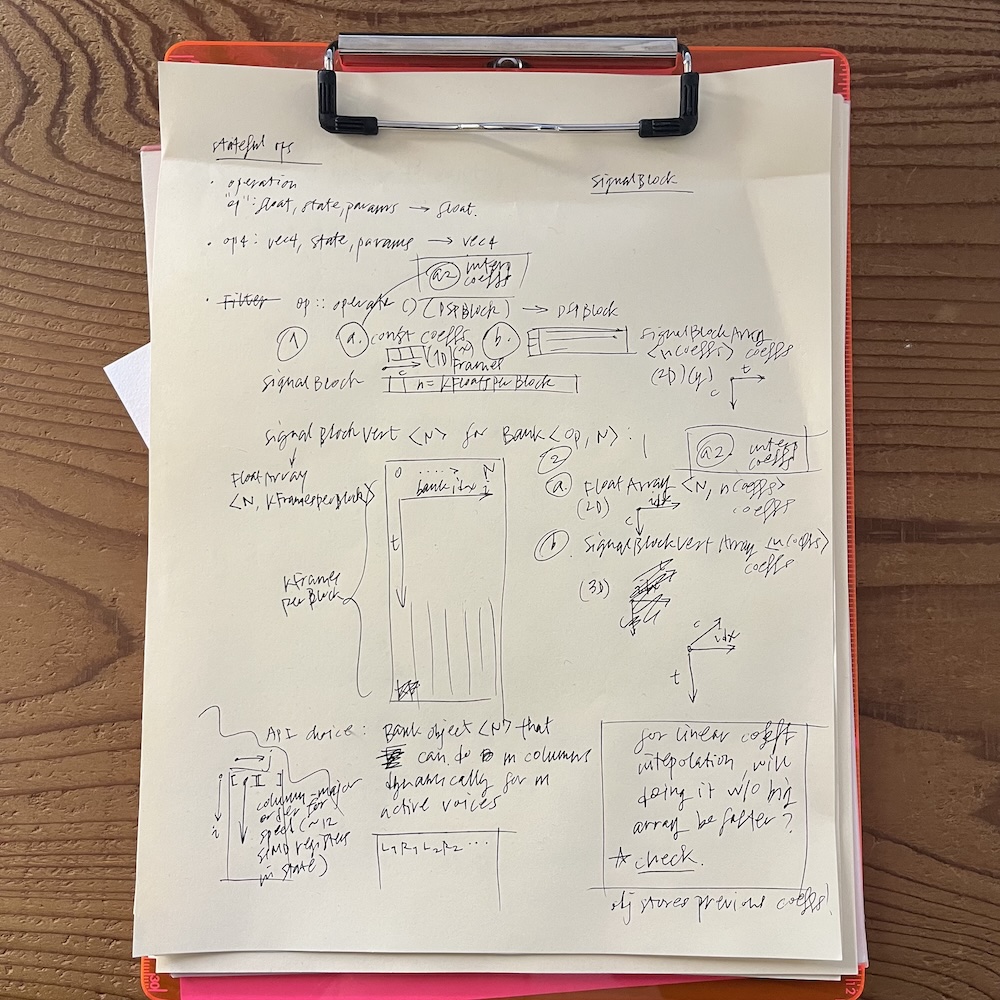 stateful ops
SignalBlock
· operation
"op": float, state, params → float.
· op4: vec4, state, params → vec4
a2 interp
coeffs
· Filter op :: operate () (DSPBlock) → DSPBlock
1 a. const coeffs b.
(1D)
c frames
SignalBlockArray
<ncoeffs> coeffs
(2D)
t
c
SignalBlock n = kFloatsPerBlock
SignalBlockVert <N> for Bank<op, N> :
FloatArray
<N, kFramesperBlock>
0 N
bank idx i
t
kFrames
per Block
2
a2. interp
coeffs
a FloatArray <N, ncoeffs>
(2D) idx coeffs
c
b. SignalBlockVert Array <ncoeffs>
coeffs
(3D)
c
idx
t
API choice: Bank object <N> that
can do m columns
dynamically for m
active voices
j
i
column-major
order for
speed (~12
SIMD registers
in state)
L1 R1 L2 R2 ...
for linear coeff
intepolation, will
doing it w/o big
array be faster?
☆ check.
obj stores previous coeffs!
30
12